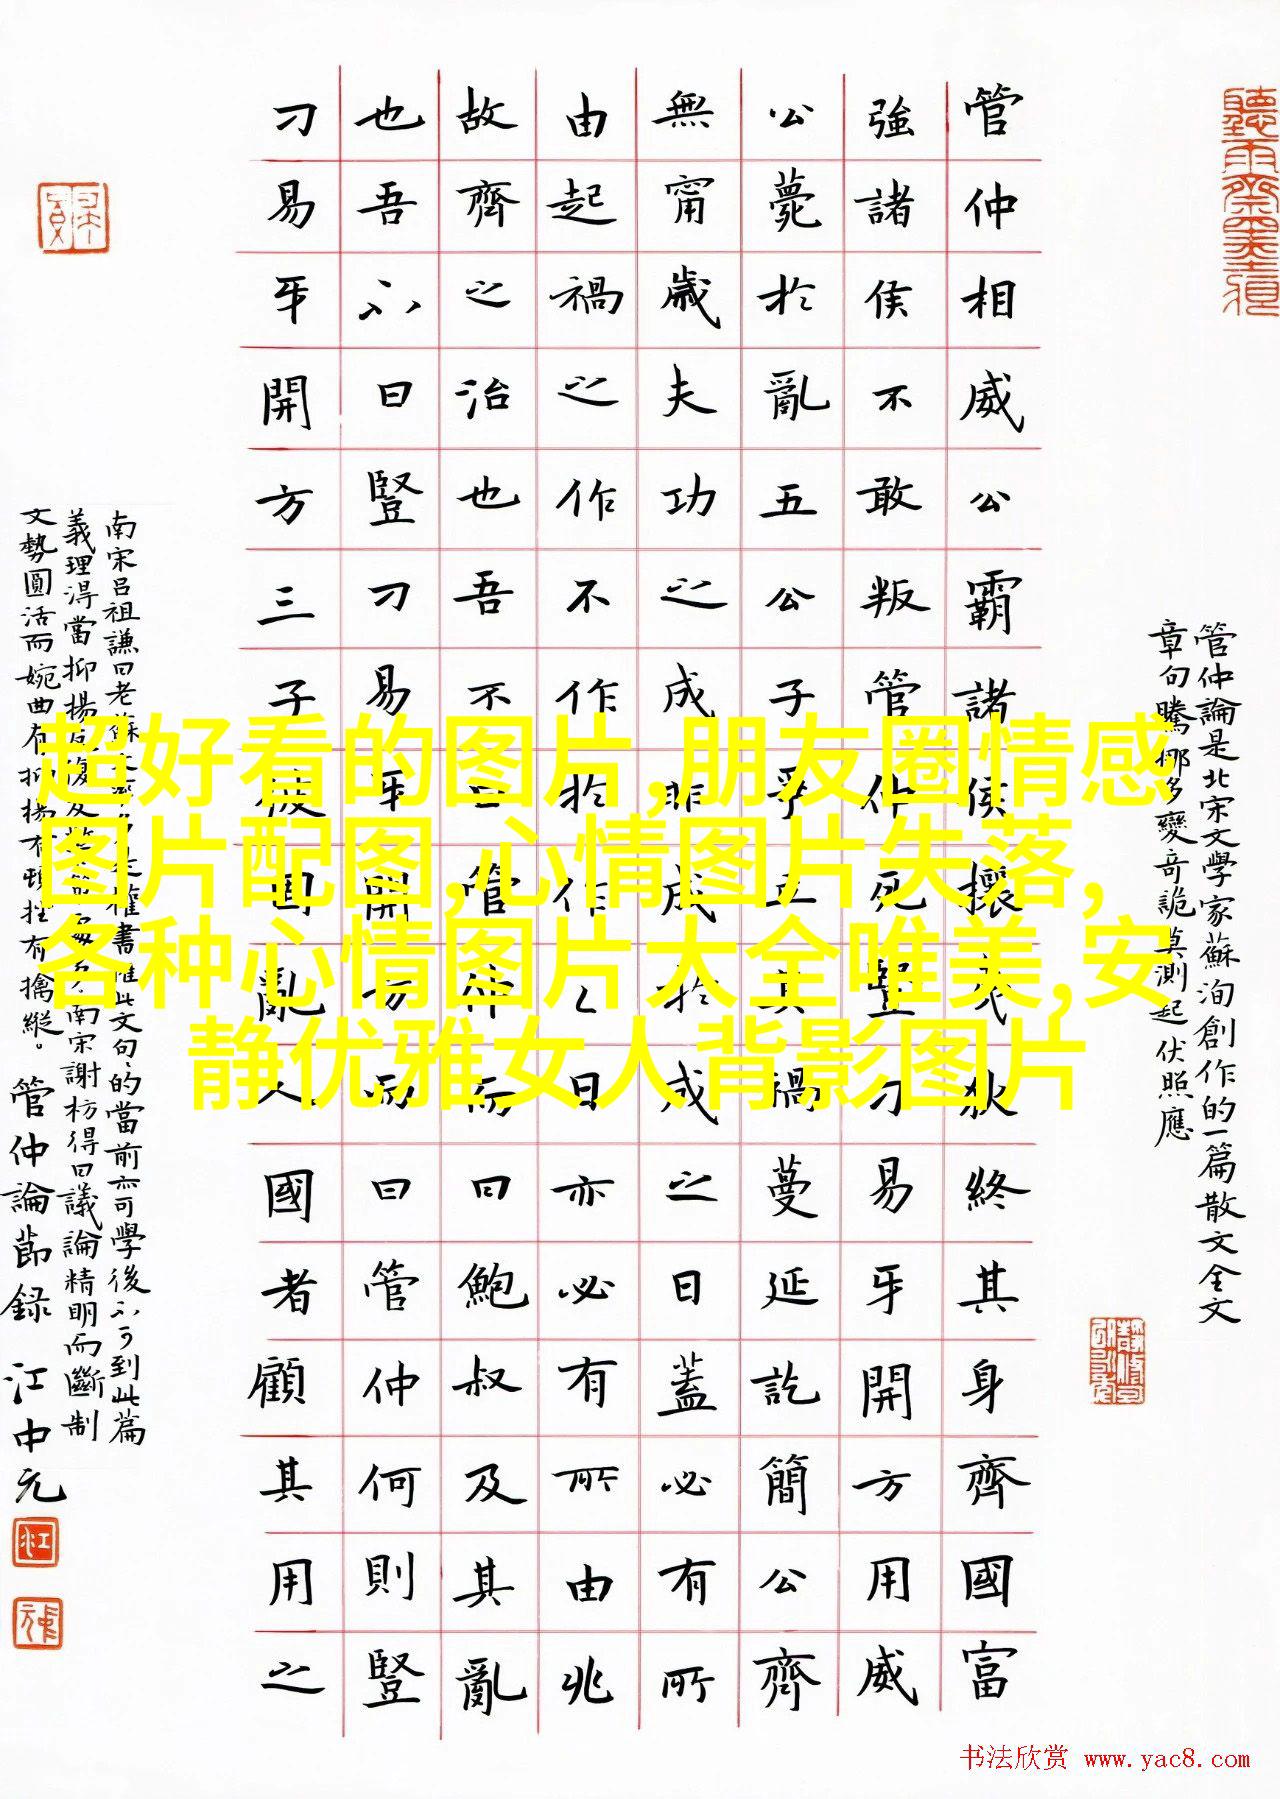 聽雨齋墨
管仲論是北宋文學家蘇洵創作的一篇散文全文
章句騰挪多變奇詭莫測起伏照應
管仲相威公霸諸侯攘戎狄終其身齊國富
強諸侯不敢叛管仲死豎刁易牙開方用威
公薨於亂五公子爭立其禍蔓延訖簡公齊
無甯歲夫功之成非成於成之日蓋必有所
由起禍之作不作於作之日亦必有所由兆
故齊之治也吾不曰管仲而曰鮑叔及其亂
也吾不曰豎刁易牙開方而曰管仲何則豎
刁易牙開方三子彼固亂人國者顧其用之
南宋呂祖謙曰老蘇大率多是權書惟此文句句的當前亦可學後不可到此篇
義理淂當抑揚反復及警策處多南宋謝枋得曰議論精明而斷制
文勢圓活而婉曲有抑揚有頓挫有擒縱。管仲論節録 江中元
超好看的图片,朋友圈情感
图片配图,心情图片失落,
各种心情图片大全唯美,安
静优雅女人背影图片
书法欣赏 www.yac8.com